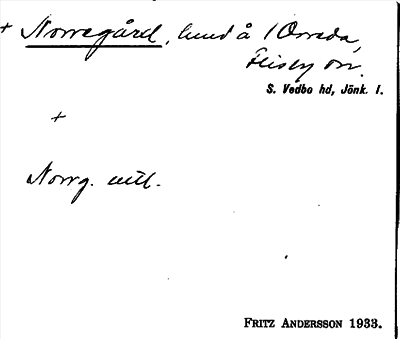 + Norregård, hund å 1 Orreda,
Flisby sn.
S. Vedbo hd, Jönk. l.
+
Norrg. utl.
FRITZ ANDERSSON 1933.